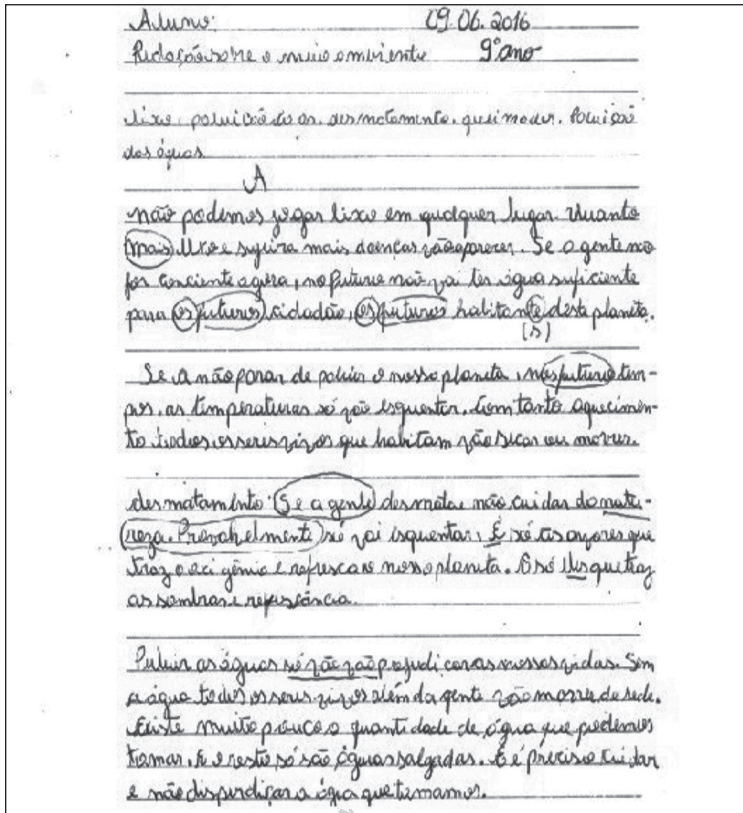 Aluno: 09.06.2016
Redação sobre o meio ambiente 9º ano
lixo, poluição do ar, desmatamento, queimadas. Poluição
das águas
A
não podemos jogar lixo em qualquer lugar. Quanto
mais lixo e sujeira mais doenças vão aparecer. Se a gente no
for conciente agora, no futuro não vai ter água suficiente
para os futuros cidadão, os futuros habitante desta planeta.
(s)
Se a não parar de poluir o nosso planeta, nos futuro tem-
pos, as temperaturas só vão esquentar. Com tanto aquecimen-
to todos os seres vivos que habitam vão sicar ou morrer.
desmatamento: Se a gente desmata e não cuidar da natu-
reza. Provahelmente só vai esquentar. É só as arvores que
traz o ocigênio e refresca o nosso planeta. É só elas que traz
as sombras e
Poluir as águas só não vão prejudicar as nossas vidas. Sem
a água todos os seres vivos além da gente vão morre de sede.
Existe muito pouco a quantidade de água que podemos
tomar. E o resto só são águas salgadas. E é preciso cuidar
e não disperdiçar a água que tomamos.